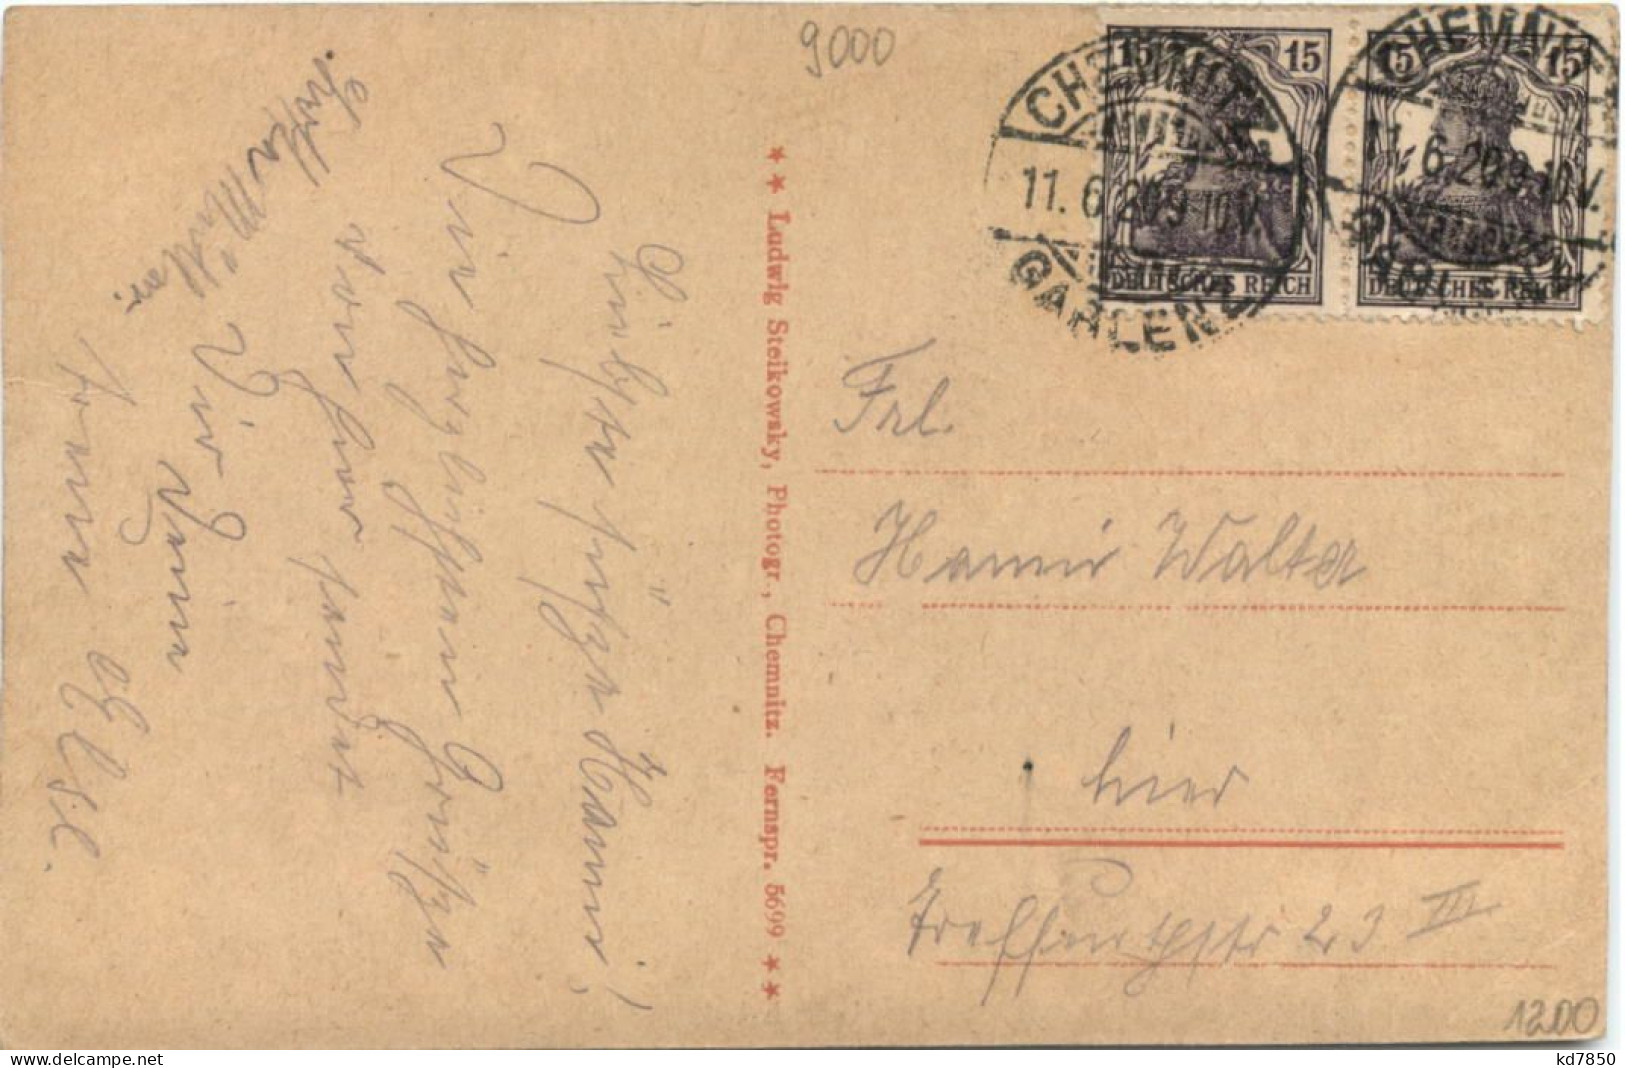 9000
15 15
15 15
DEUTSCHES REICH
DEUTSCHES REICH
CHEMNITZ
11.6.20 9-10V.
GABLENZ
CHEMNITZ
11.6.20 9-10V.
GABLENZ
Liebste süßze Hanni!
Die herzlichsten Grüße
von hier sendet
Dir Deine
Anni Else.
Müller
Frl.
Hanni Walter
hier
23 III.
★ ★ Ludwig Steikowsky, Photogr., Chemnitz. Fernspr. 5699 ★ ★
1200
kd7850